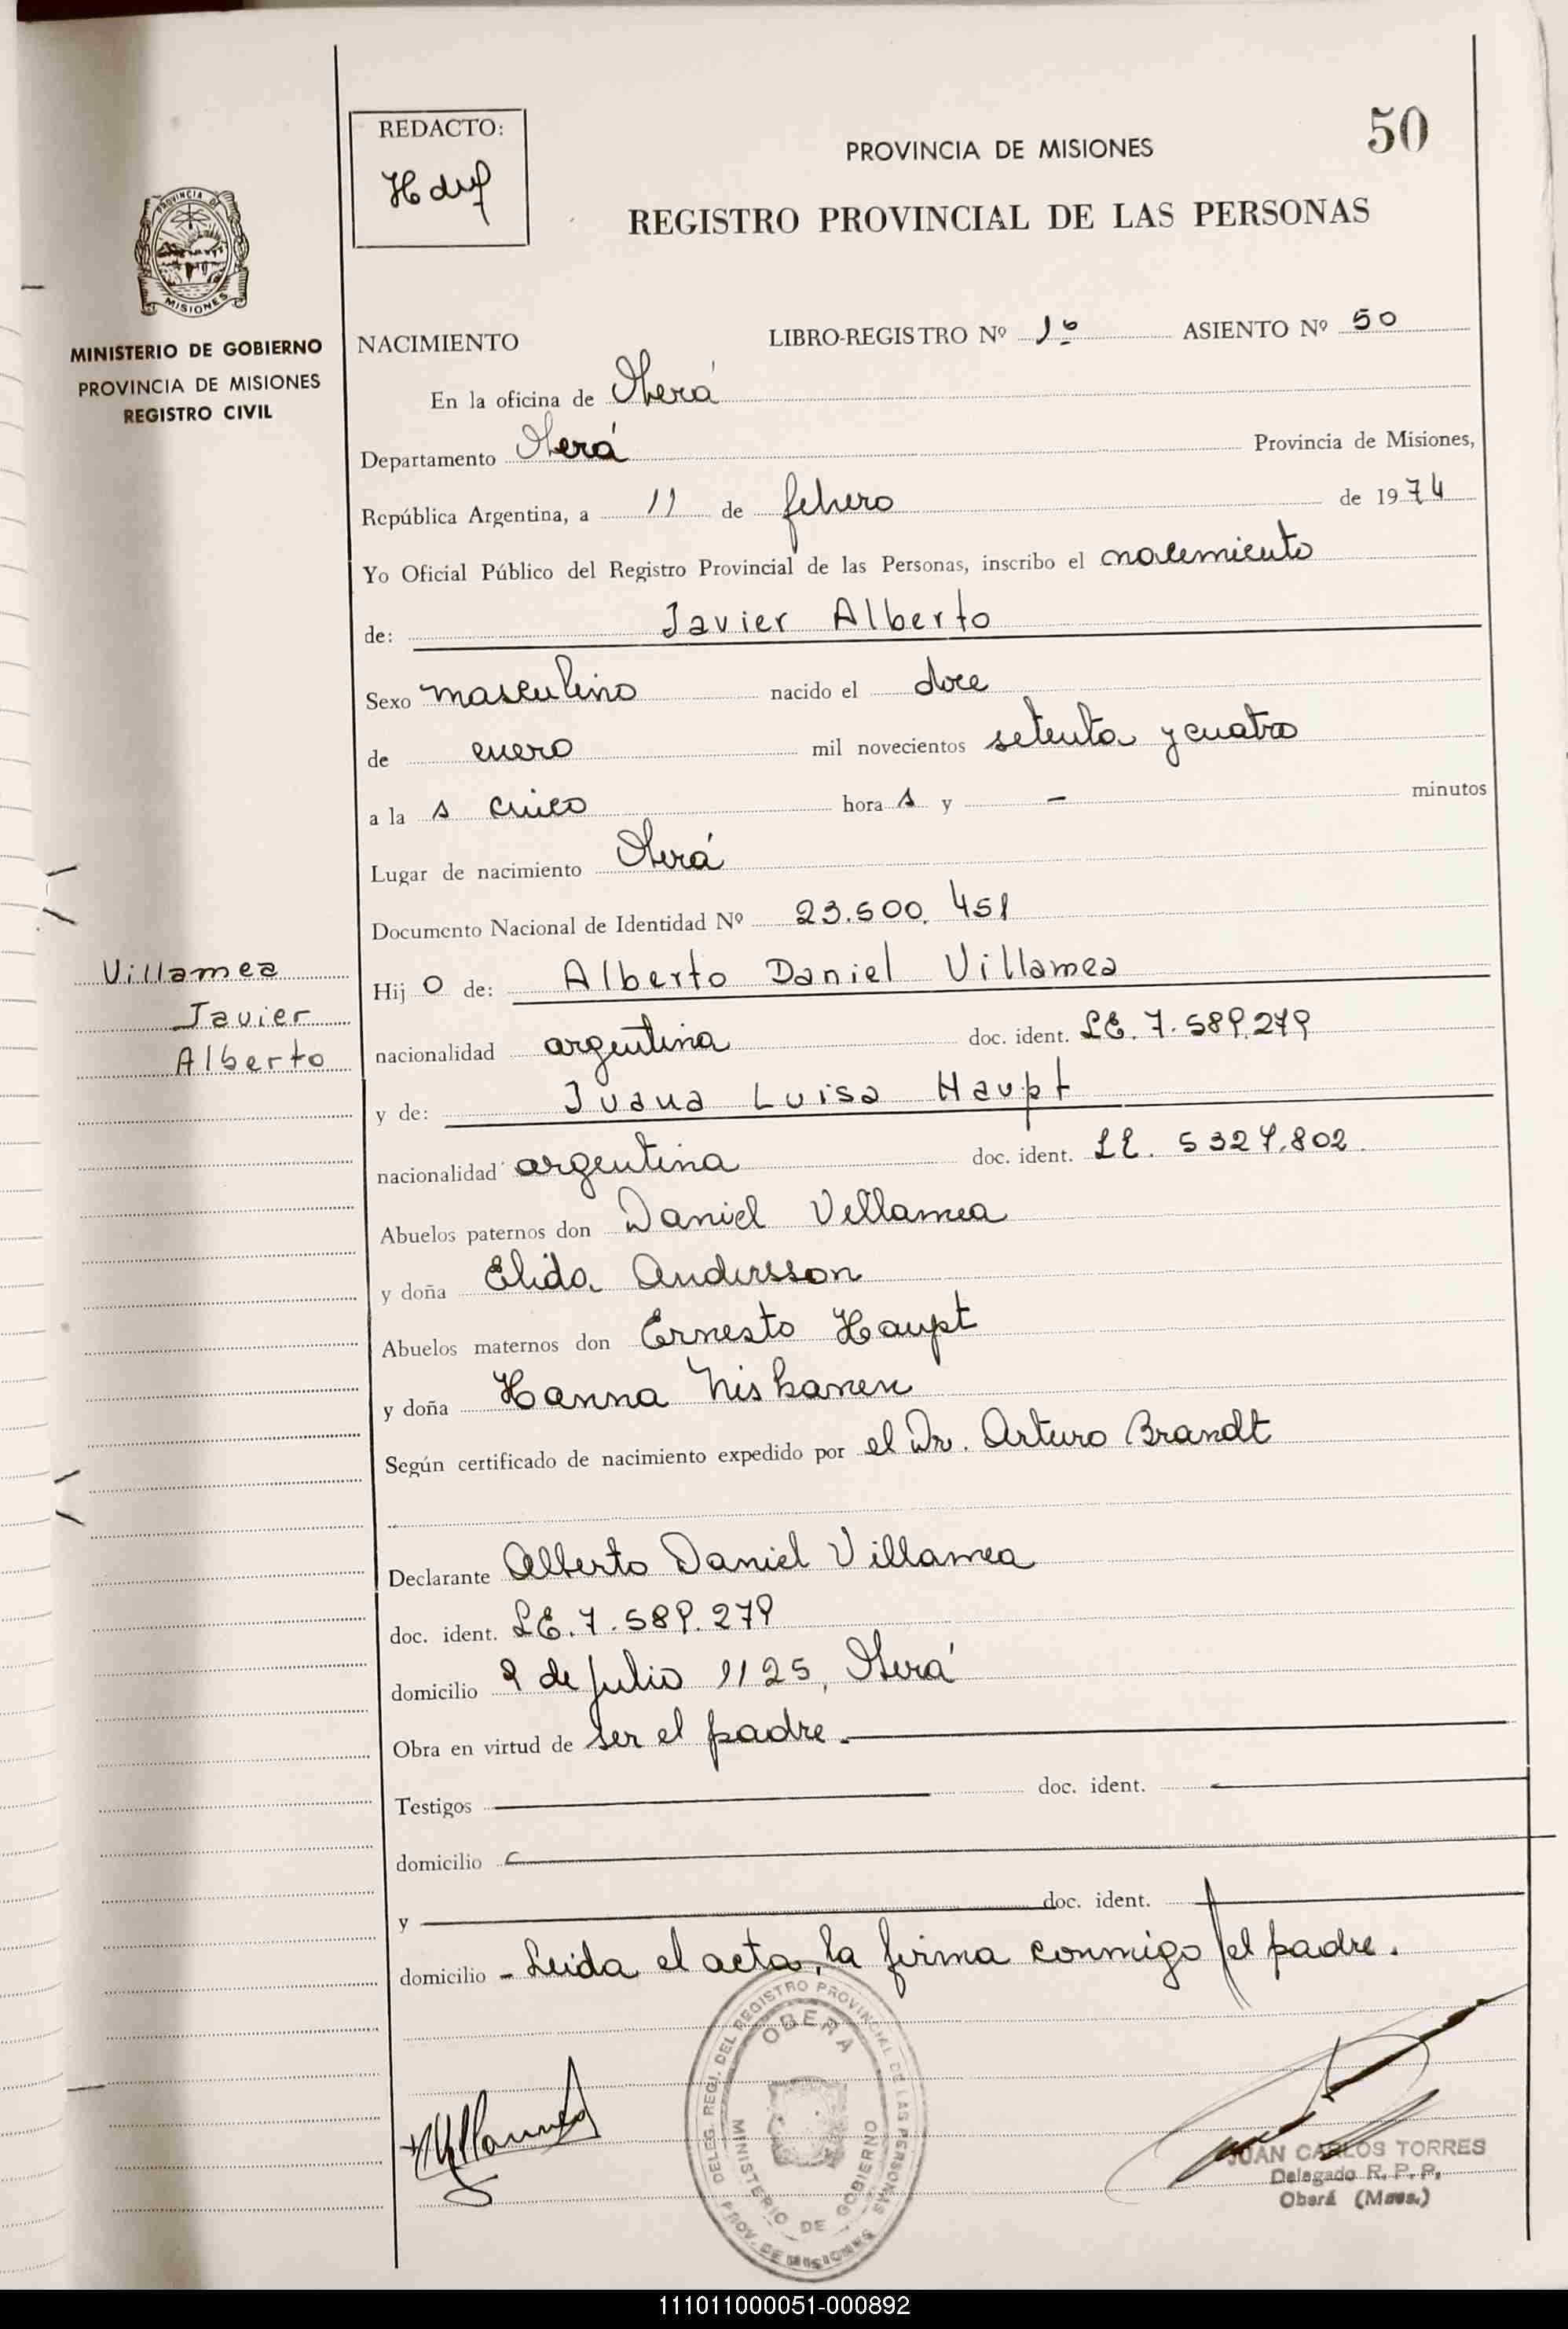 REDACTO:
50
PROVINCIA DE MISIONES
REGISTRO PROVINCIAL DE LAS PERSONAS
PROVINCIA DE
MISIONES
MINISTERIO DE GOBIERNO
PROVINCIA DE MISIONES
REGISTRO CIVIL
NACIMIENTO LIBRO-REGISTRO Nº 1º ASIENTO Nº 50
En la oficina de Oberá
Departamento Oberá Provincia de Misiones,
República Argentina, a 11 de febrero de 1974
Yo Oficial Público del Registro Provincial de las Personas, inscribo el nacimiento
de: Javier Alberto
Sexo masculino nacido el doce
de enero mil novecientos setenta y cuatro
a la s cinco hora s y - minutos
Lugar de nacimiento Oberá
Documento Nacional de Identidad Nº 23.500.451
Villamea
Javier
Alberto
Hij o de: Alberto Daniel Villamea
nacionalidad argentina doc. ident. LE. 7.589.279
y de: Juana Luisa Haupt
nacionalidad argentina doc. ident. LE. 5327.802
Abuelos paternos don Daniel Villamea
y doña Elida Andersson
Abuelos maternos don Ernesto Haupt
y doña Hanna Niskanen
Según certificado de nacimiento expedido por el Dr. Arturo Brandt
Declarante Alberto Daniel Villamea
doc. ident. LE. 7.589.279
domicilio 9 de Julio 1125, Oberá
Obra en virtud de ser el padre.
Testigos doc. ident.
domicilio
y doc. ident.
domicilio - Leida el acta, la firma conmigo el padre.
DELEG. REGI. DEL REGISTRO PROVINCIAL DE LAS PERSONAS
OBERA
MINISTERIO DE GOBIERNO
PROV. DE MISIONES
Villamea
JUAN CARLOS TORRES
Delegado R. P. P.
Oberá (Mnes.)
111011000051-000892